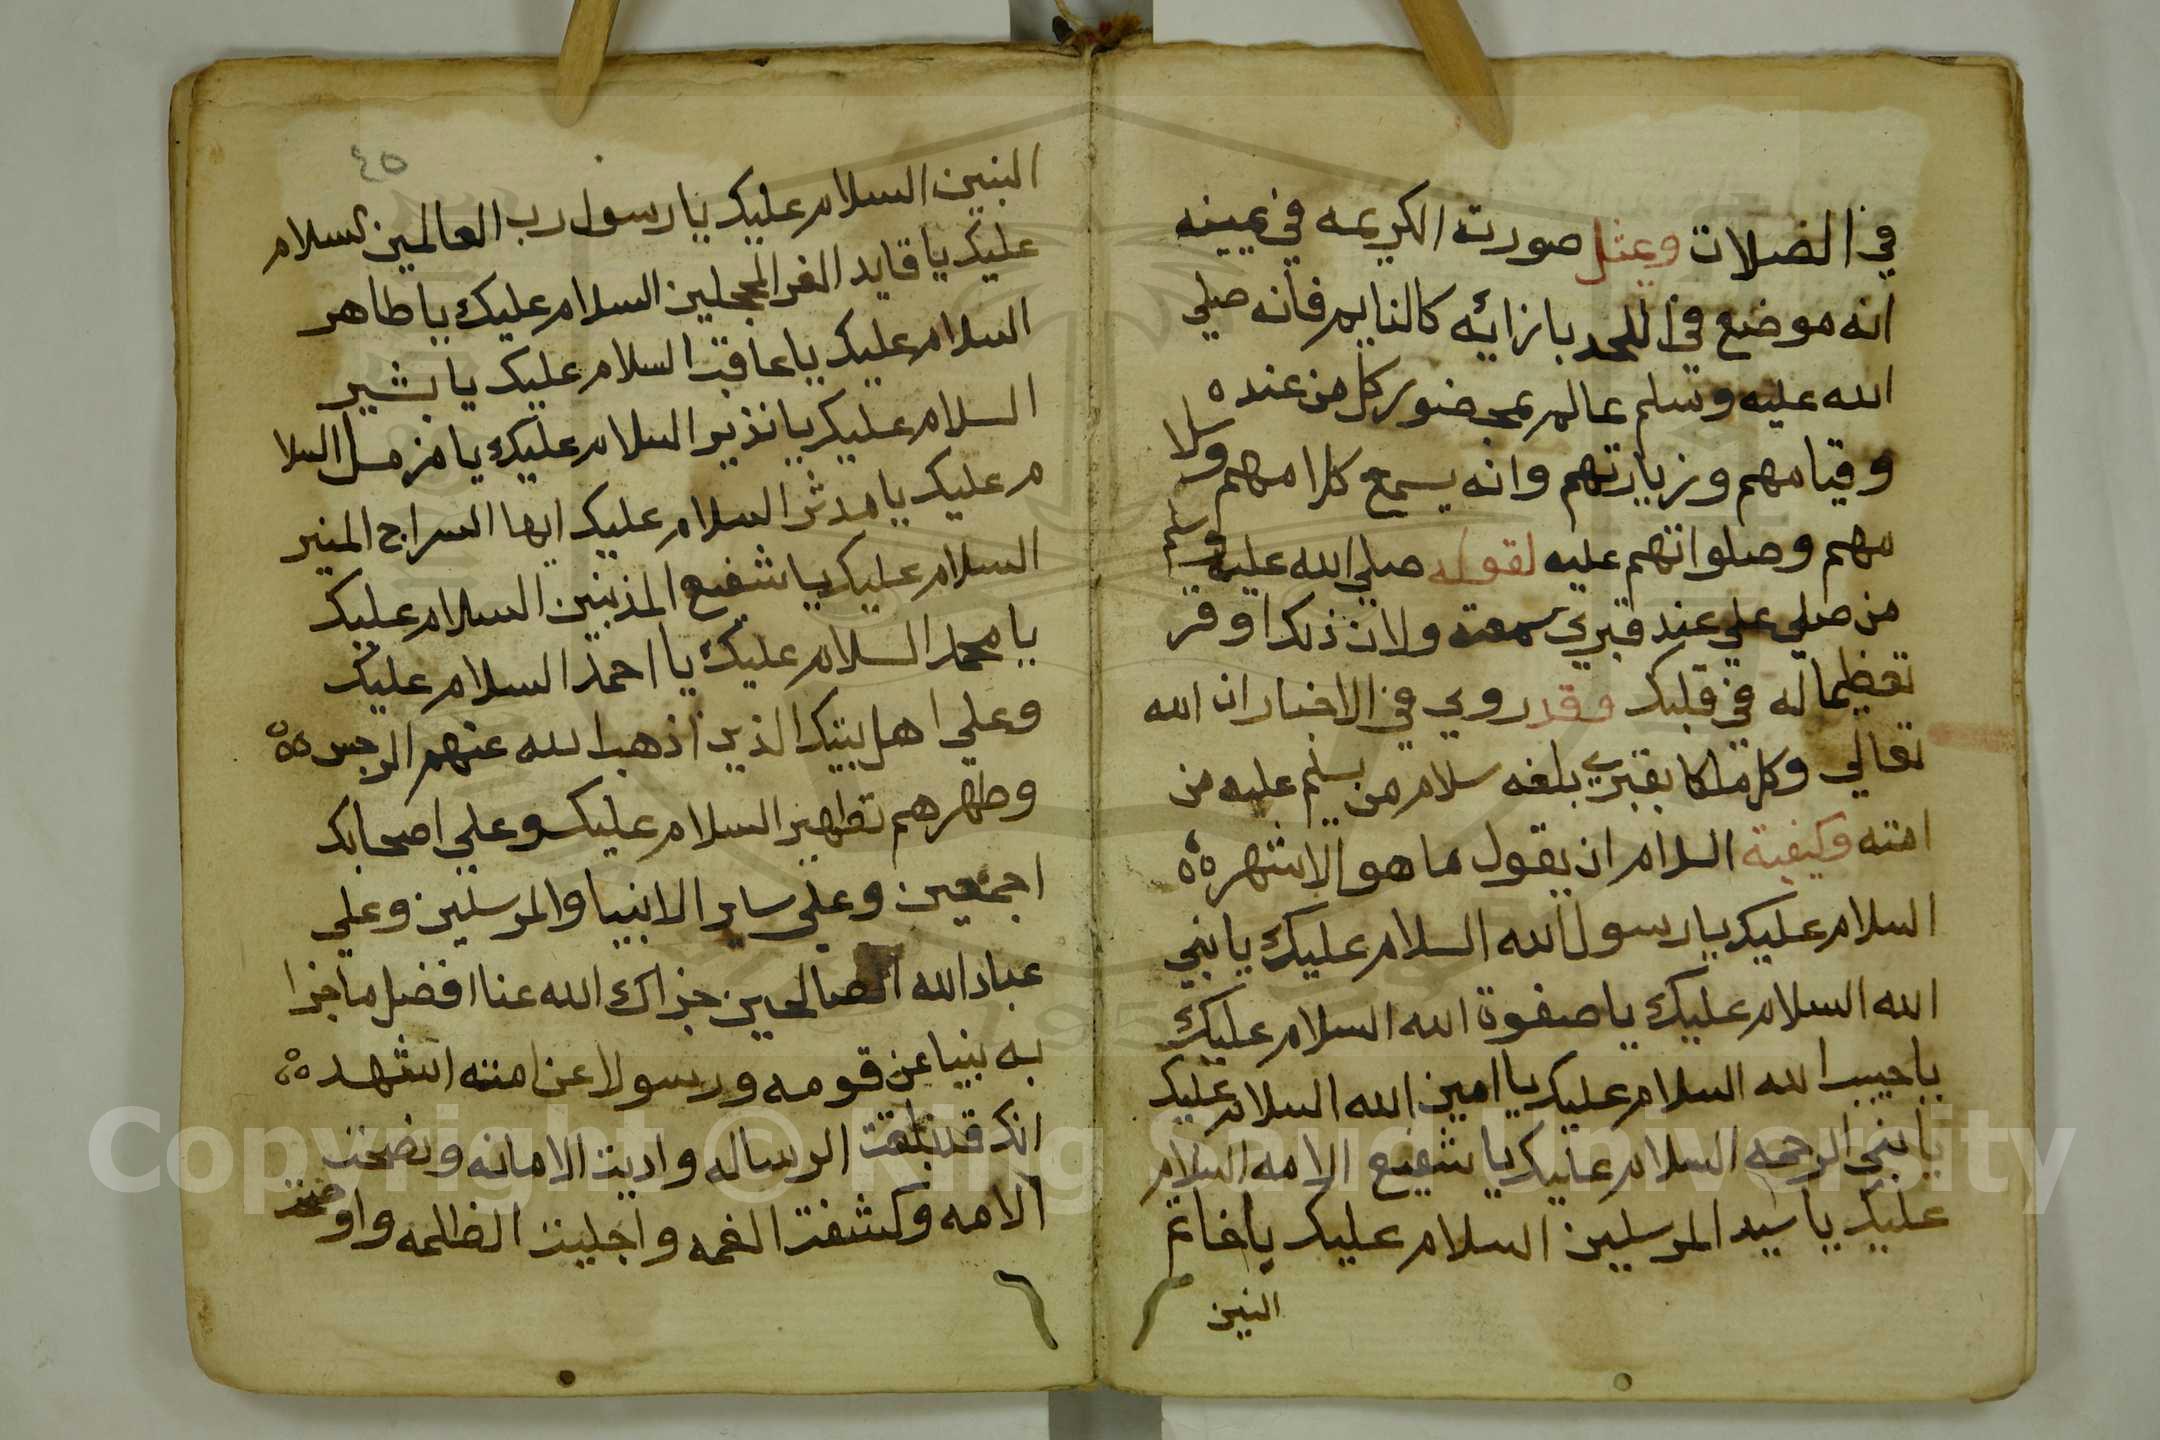 في الضلات ويمثل صورته الكريمه في يمينه
انه موضع في اللحد بازائه كالنايم فانه صلي
الله عليه وسلم عالم بمحضور كل من عنده
وقيامهم وزيارتهم وانه يسمع كلامهم وسلا
مهم وصلواتهم عليه لقوله صلي الله عليه وسلم
من صلي علي عند قبري سمعته ولان ذلك اوقر
تعظيما له في قلبك وقد روي في الاخبار ان الله
تعالي وكل ملكا بقبري يبلغه سلام من يسلم عليه من
امته وكيفية السلام ان يقول ما هو الاشهر
السلام عليك يا رسول الله السلام عليك يا نبي
الله السلام عليك يا صفوة الله السلام عليك
يا حبيب الله السلام عليك يا امين الله السلام عليك
يا نبي الرحمه السلام عليك يا شفيع الامه السلام
عليك يا سيد المرسلين السلام عليك يا خاتم
النبين
٤٥
النبين السلام عليك يا رسول رب العالمين السلام
عليك يا قايد الغر المحجلين السلام عليك يا طاهر
السلام عليك يا عاقب السلام عليك يا بشير
السلام عليك يا نذير السلام عليك يا مزمل السلا
م عليك يا مدثر السلام عليك ايها السراج المنير
السلام عليك يا شفيع المذنبين السلام عليك
يا محمد السلام عليك يا احمد السلام عليك
وعلي اهل بيتك الذين اذهب الله عنهم الرجس
وطهرهم تطهير السلام عليك وعلي اصحابك
اجمعين وعلي ساير الانبيا والمرسلين وعلي
عباد الله الصالحين جزاك الله عنا افضل ما جزا
به نبيا عن قومه ورسولا عن امته اشهد
انك قد بلغت الرساله واديت الامانه ونصحت
الامه وكشفت الغمه واجليت الظلمه واوضحت
Copyright © King Saud University